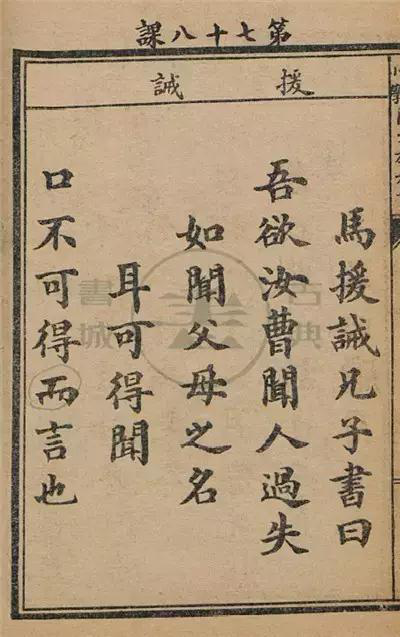 第七十八課
援誡
馬援誡兄子書曰
吾欲汝曹聞人過失
如聞父母之名
耳可得聞
口不可得而言也
古典書城